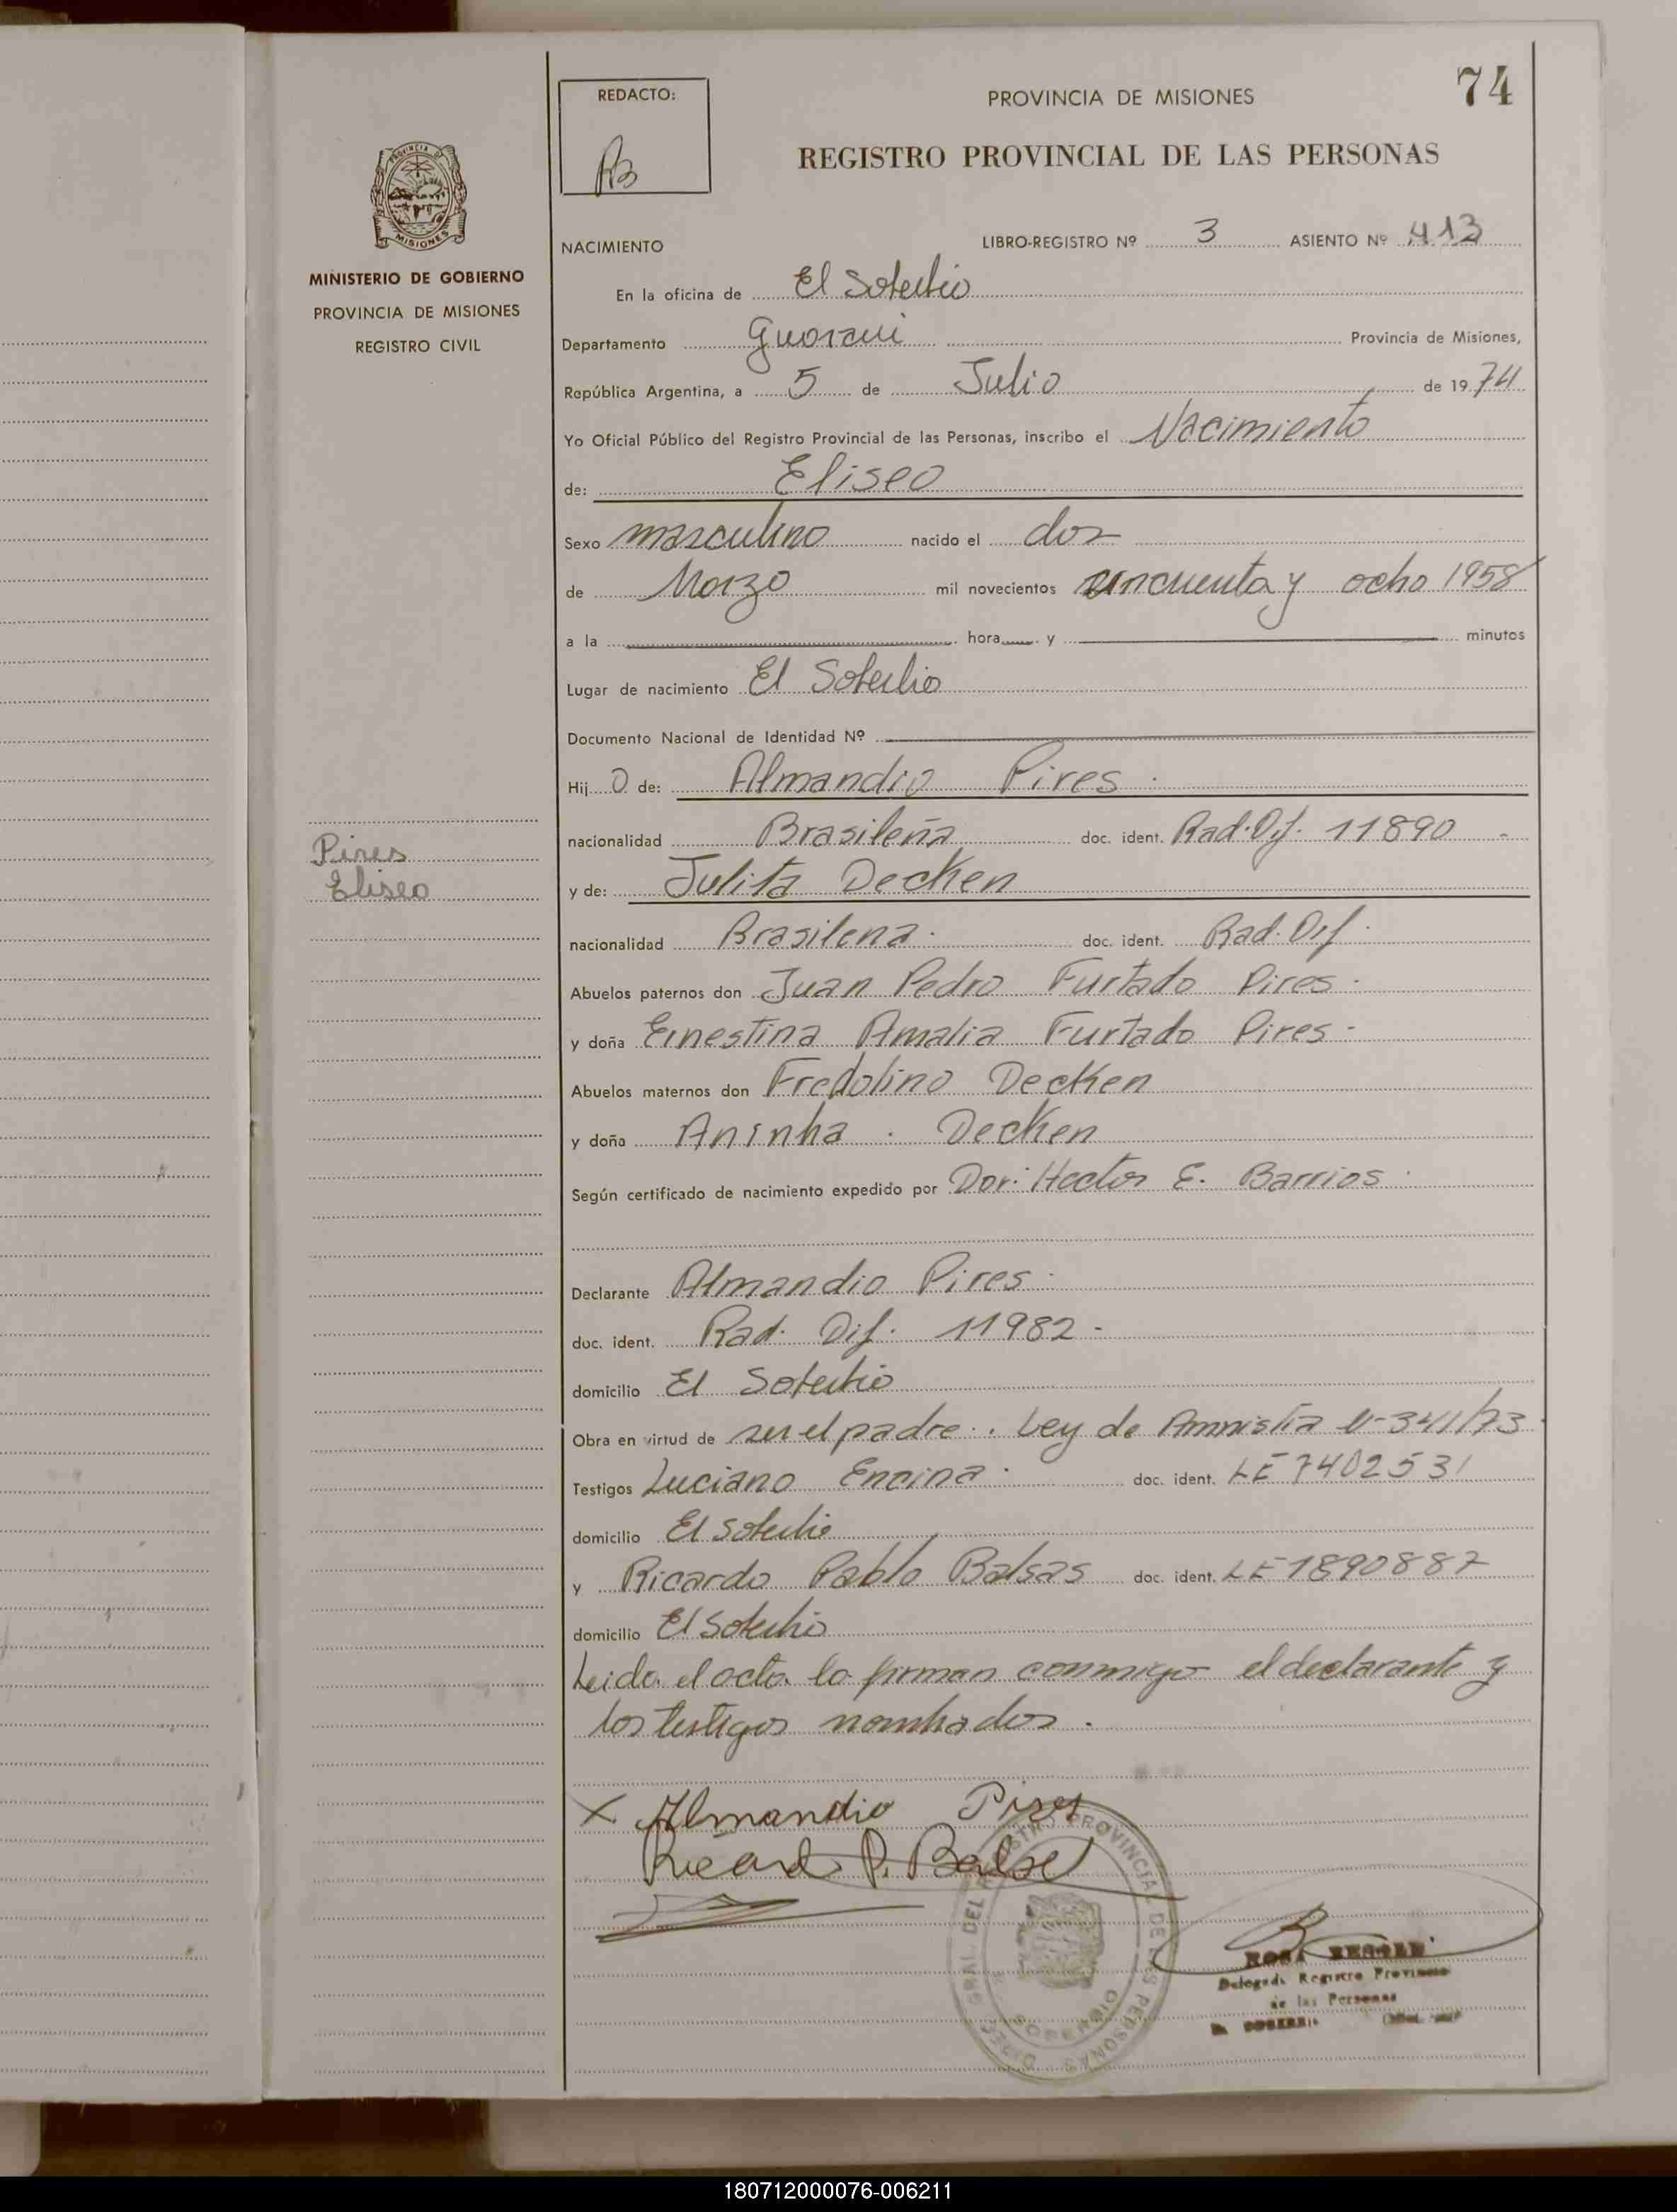 74
REDACTO:
PROVINCIA DE MISIONES
REGISTRO PROVINCIAL DE LAS PERSONAS
PROVINCIA DE
MISIONES
MINISTERIO DE GOBIERNO
PROVINCIA DE MISIONES
REGISTRO CIVIL
NACIMIENTO LIBRO-REGISTRO Nº 3 ASIENTO Nº 413
En la oficina de El Soberbio
Departamento Guarani Provincia de Misiones,
República Argentina, a 5 de Julio de 19 74
Yo Oficial Público del Registro Provincial de las Personas, inscribo el Nacimiento
de: Eliseo
Sexo masculino nacido el dos
de Marzo mil novecientos cincuenta y ocho 1958
a la hora y minutos
Lugar de nacimiento El Soberbio
Documento Nacional de Identidad Nº
Hij o de: Almandio Pires.
nacionalidad Brasileña doc. ident. Rad. Dif. 11890 -
Pires
Eliseo
y de: Julita Decken
nacionalidad Brasilena. doc. ident. Rad. Dif.
Abuelos paternos don Juan Pedro Furtado Pires.
y doña Ernestina Amalia Furtado Pires-
Abuelos maternos don Fredolino Decken
y doña Aninha . Decken
Según certificado de nacimiento expedido por Dor: Hector E. Barrios.
Declarante Almandio Pires.
doc. ident. Rad. Dif. 11982-
domicilio El Soberbio
Obra en virtud de ser el padre. . Ley de Amnistía 341/73.
Testigos Luciano Encina. doc. ident. LE 7402531
domicilio El Soberbio
y Ricardo Pablo Balsas doc. ident. LE 1890887
domicilio El Soberbio
Leida el acta la firman conmigo el declarante y
los testigos nombrados.
X Almandio Pires
Ricard P. Balse
ROSA
Delegada Registro Provincial
de las Personas
180712000076-006211